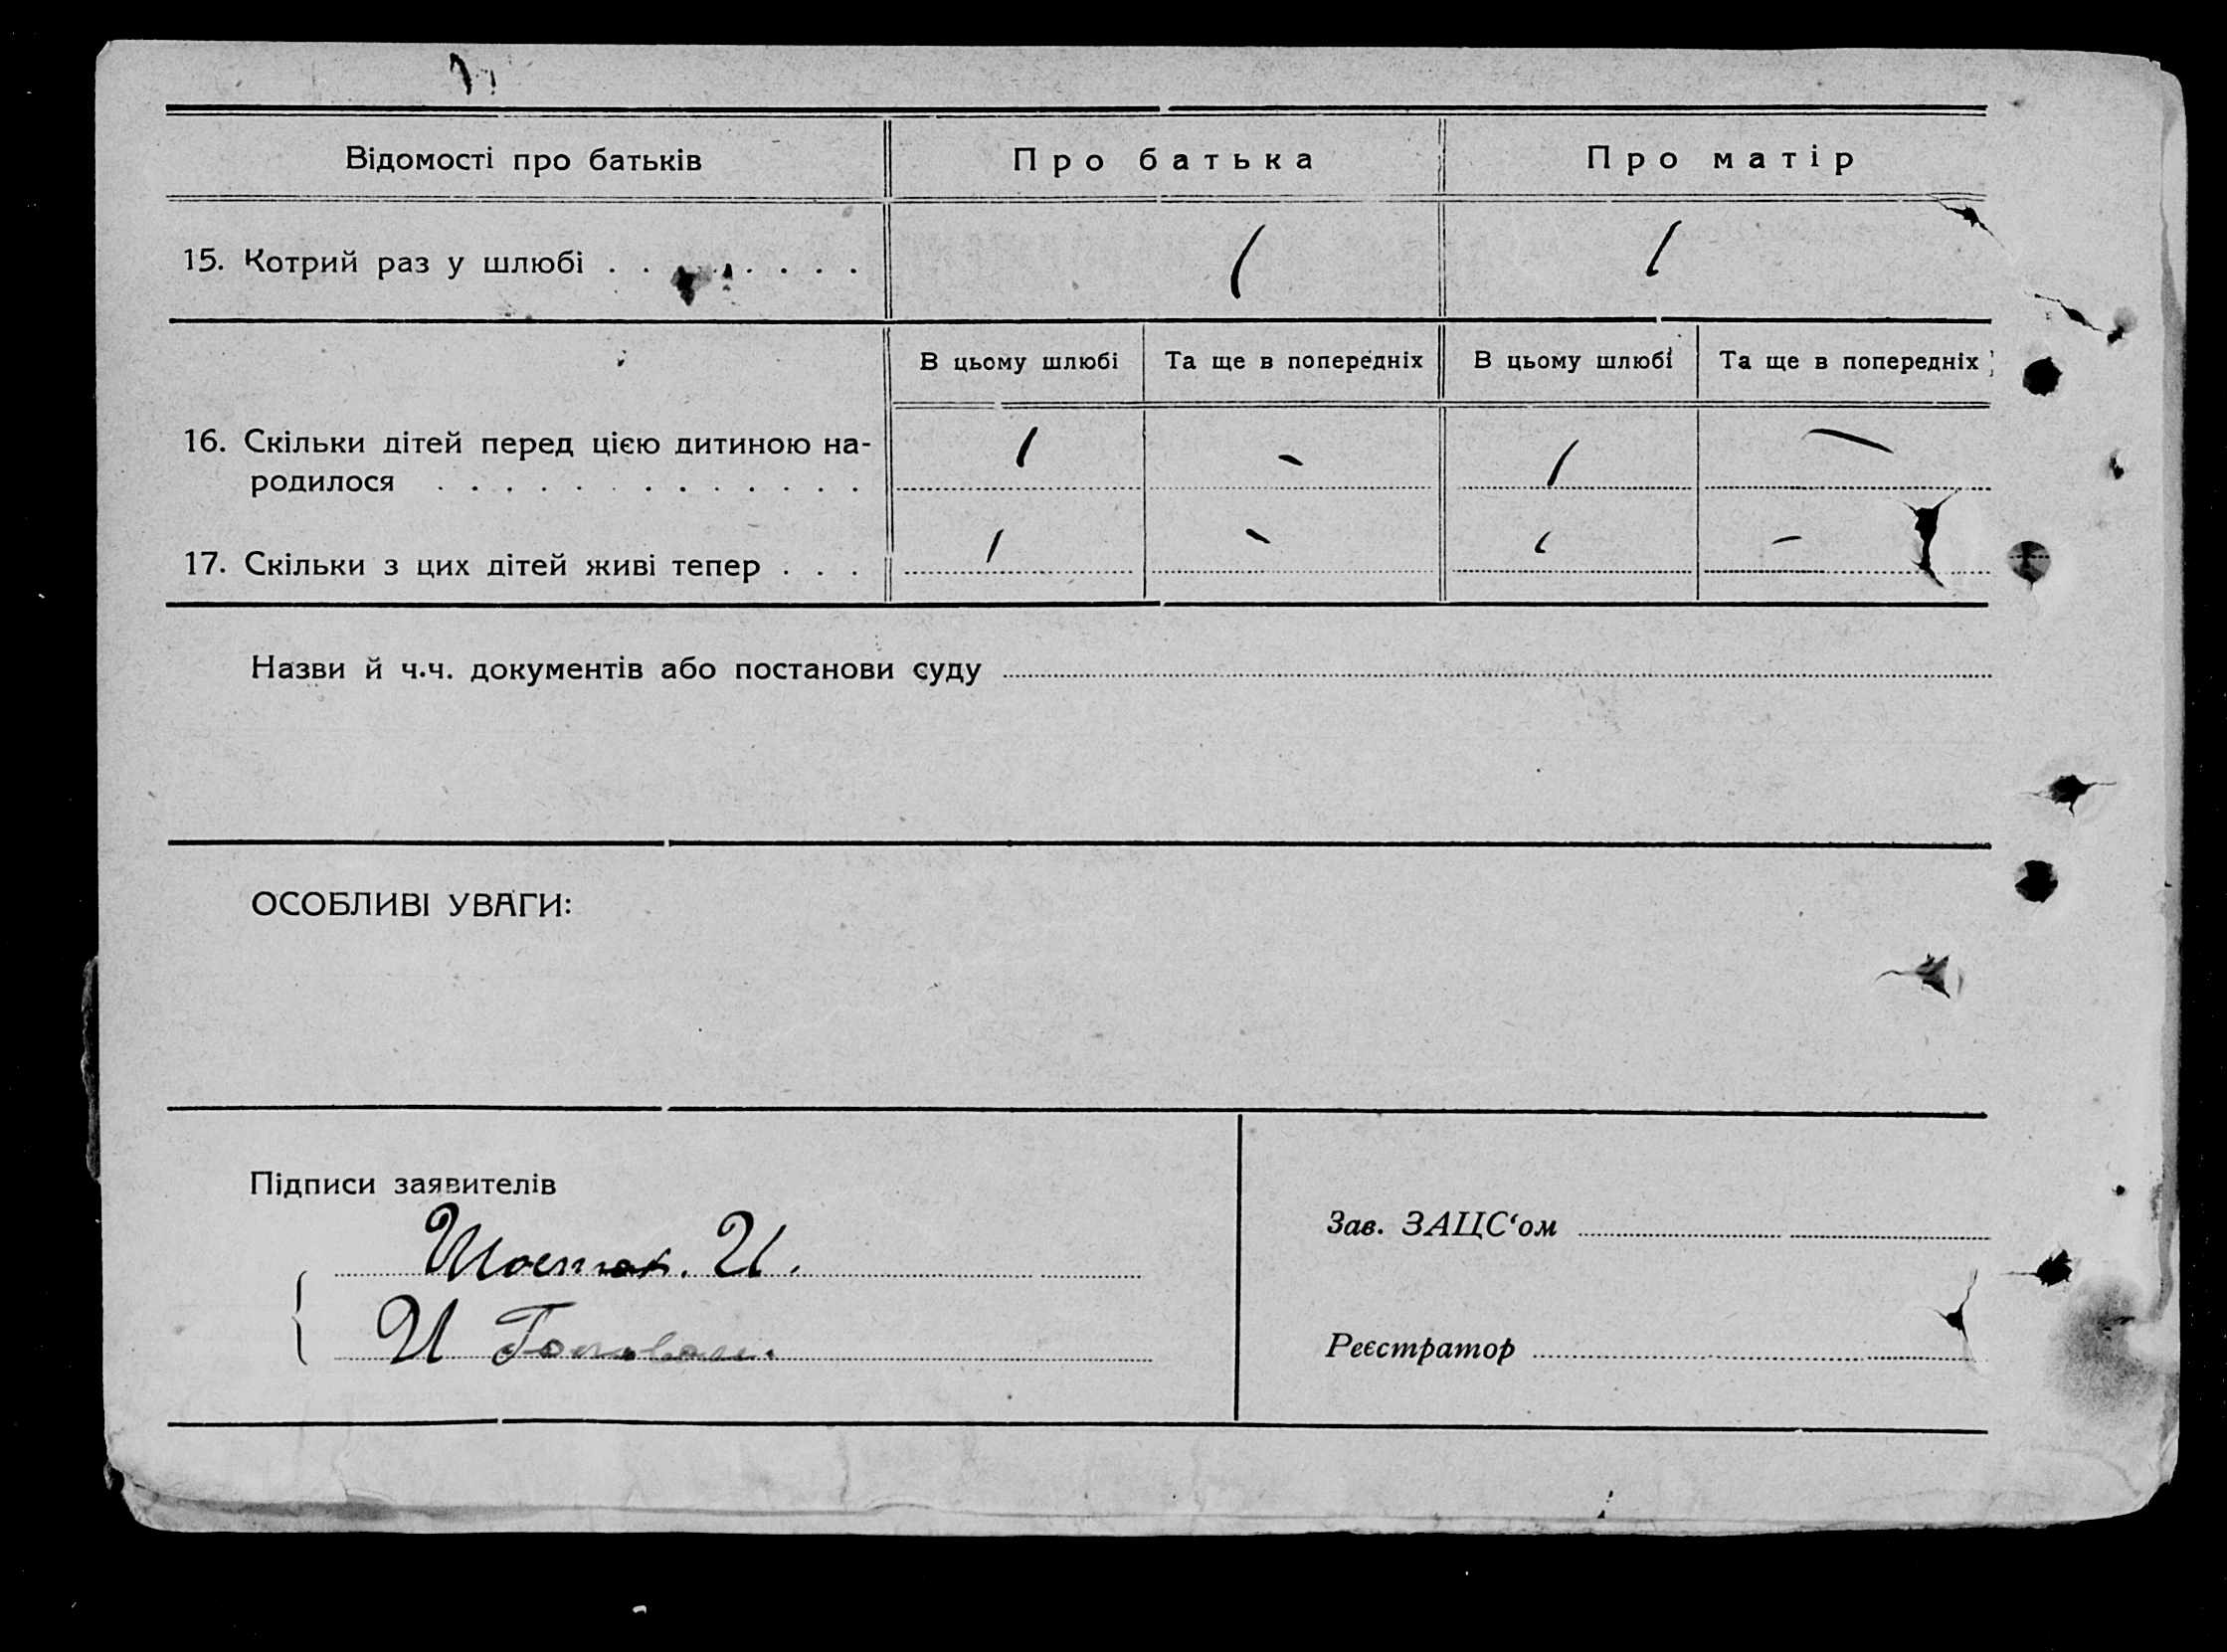 Відомості про батьків Про батька Про матір
15. Котрий раз у шлюбі . . . . . . . . 1 1
В цьому шлюбі Та ще в попередніх В цьому шлюбі Та ще в попередніх
16. Скільки дітей перед цією дитиною на-
родилося . . . . . . . . . . . . . 1 - 1 -
17. Скільки з цих дітей живі тепер . . . 1 - 1 -
Назви й ч.ч. документів або постанови суду
ОСОБЛИВІ УВАГИ:
Підписи заявителів
Шостак. И.
И
Зав. ЗАЦС‘ом
Реєстратор